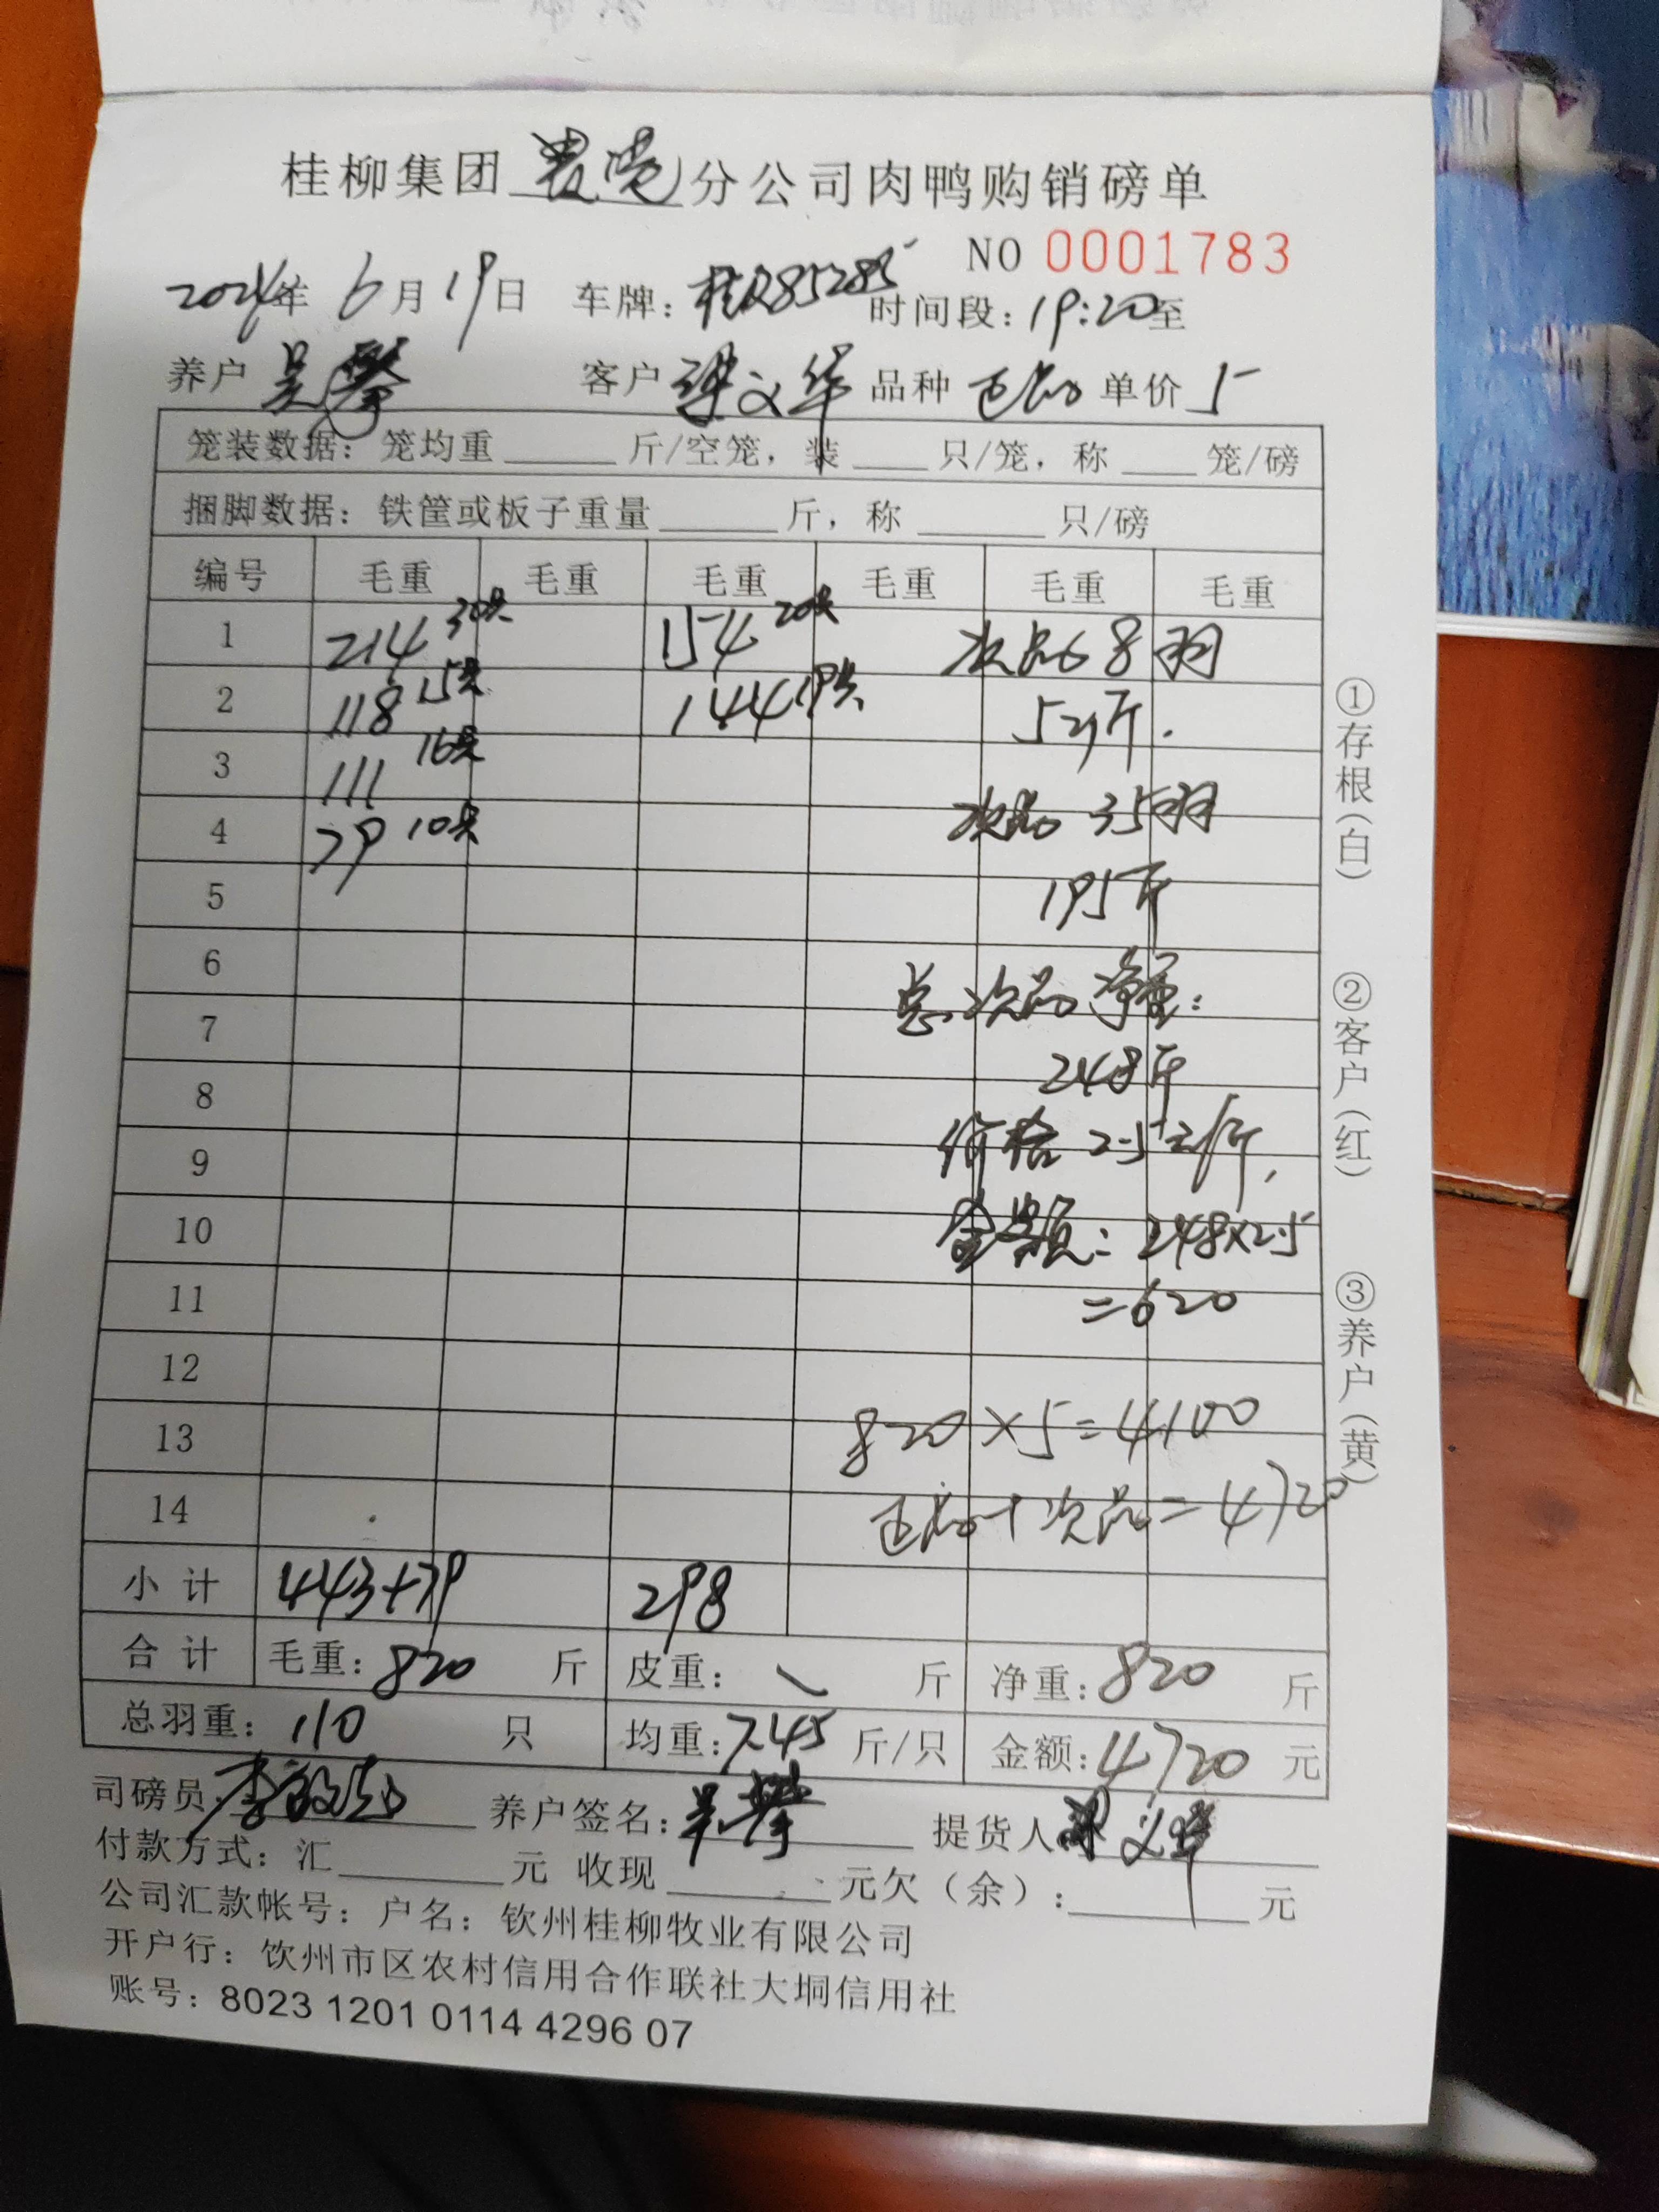 桂柳集团 贵港 分公司肉鸭购销磅单
NO 0001783
2024年 6月19日 车牌: 桂R85285 时间段: 19:20至
养户 吴攀 客户 梁文华 品种 正品 单价 5
笼装数据: 笼均重 斤/空笼, 装 只/笼, 称 笼/磅
捆脚数据: 铁筐或板子重量 斤, 称 只/磅
编号 毛重 毛重 毛重 毛重 毛重 毛重
1 214 30只 154 20只 次品 8羽
2 118 15只 144 19只 53斤.
3 111 16只
4 79 10只 次品 35羽
5 195斤
6
7 总次品净重:
8 248斤
9 价格 2.5元/斤,
10 金额: 248×2.5
11 =620
12
13 820×5=4100
14 正品+次品=4720
小计 443+79 298
合计 毛重: 820 斤 皮重: 斤 净重: 820 斤
总羽重: 110 只 均重: 7.45 斤/只 金额: 4720 元
司磅员: 养户签名: 吴攀 提货人 梁文华
付款方式: 汇 元 收现 元欠(余): 元
公司汇款帐号: 户名: 钦州桂柳牧业有限公司
开户行: 饮州市区农村信用合作联社大垌信用社
账号: 8023 1201 0114 4296 07
①存根(白)
②客户(红)
③养户(黄)